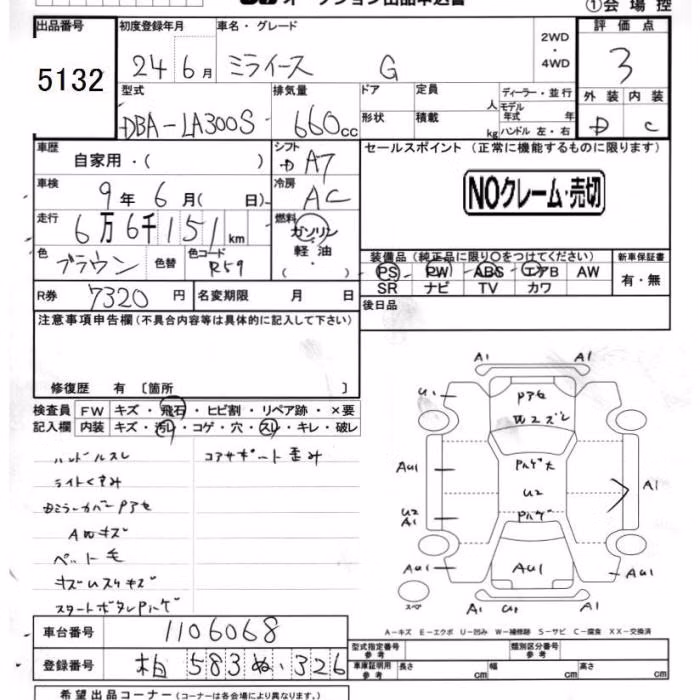 オークション出品申込書
①会場控
出品番号 初度登録年月 車名・グレード 2WD・4WD 評価点
5132 24年 6月 ミライース G 3
型式 排気量 ドア 定員 人 ディーラー・並行 外装 内装
DBA-LA300S 660cc 形状 積載 kg モデル年式 年 ハンドル 左・右 D C
車歴 自家用・( ) シフト D A7 セールスポイント (正常に機能するものに限ります)
車検 9年 6月( 日) 冷房 AC NOクレーム・売切
走行 6万6千151km 燃料 ガソリン 軽油・( )
色 ブラウン 色替 色コード R59 装備品 (純正品に限り○をつけてください) 新車保証書
PS PW ABS エアB AW 有・無
SR ナビ TV カワ
R券 7320円 名変期限 月 日 後日品
注意事項申告欄 (不具合内容等は具体的に記入して下さい)
修復歴 有 〔箇所 〕
検査員 FW キズ・飛石・ヒビ割・リペア跡・×要
記入欄 内装 キズ・汚レ・コゲ・穴・スレ・キレ・破レ
ハンドルスレ コアサポート歪み
ライトくすみ
Dミラーカバー Pアセ
AWキズ
ペット毛
キズ
スタートボタン
A1 A1
U1 Pアセ
AU1 A1
U2 U2
A1
AU1 AU1 AU1
スペア A1
A-キズ E-エクボ U-凹み W-補修跡 S-サビ C-腐食 XX-交換済
車台番号 1106068
登録番号 柏 583 ぬ・326
型式指定番号 参考 類別区分番号 参考
車庫証明用 参考 長さ cm 幅 cm 高さ cm
希望出品コーナー (コーナーは各会場により異なります。)